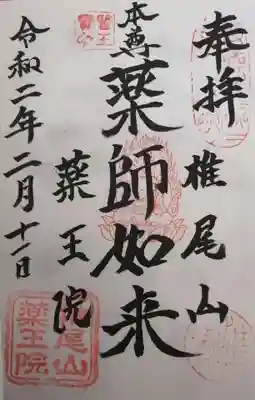 奉拝
椎尾山
本尊
薬師如来
薬王院
令和二年二月十一日
椎尾山
薬王院